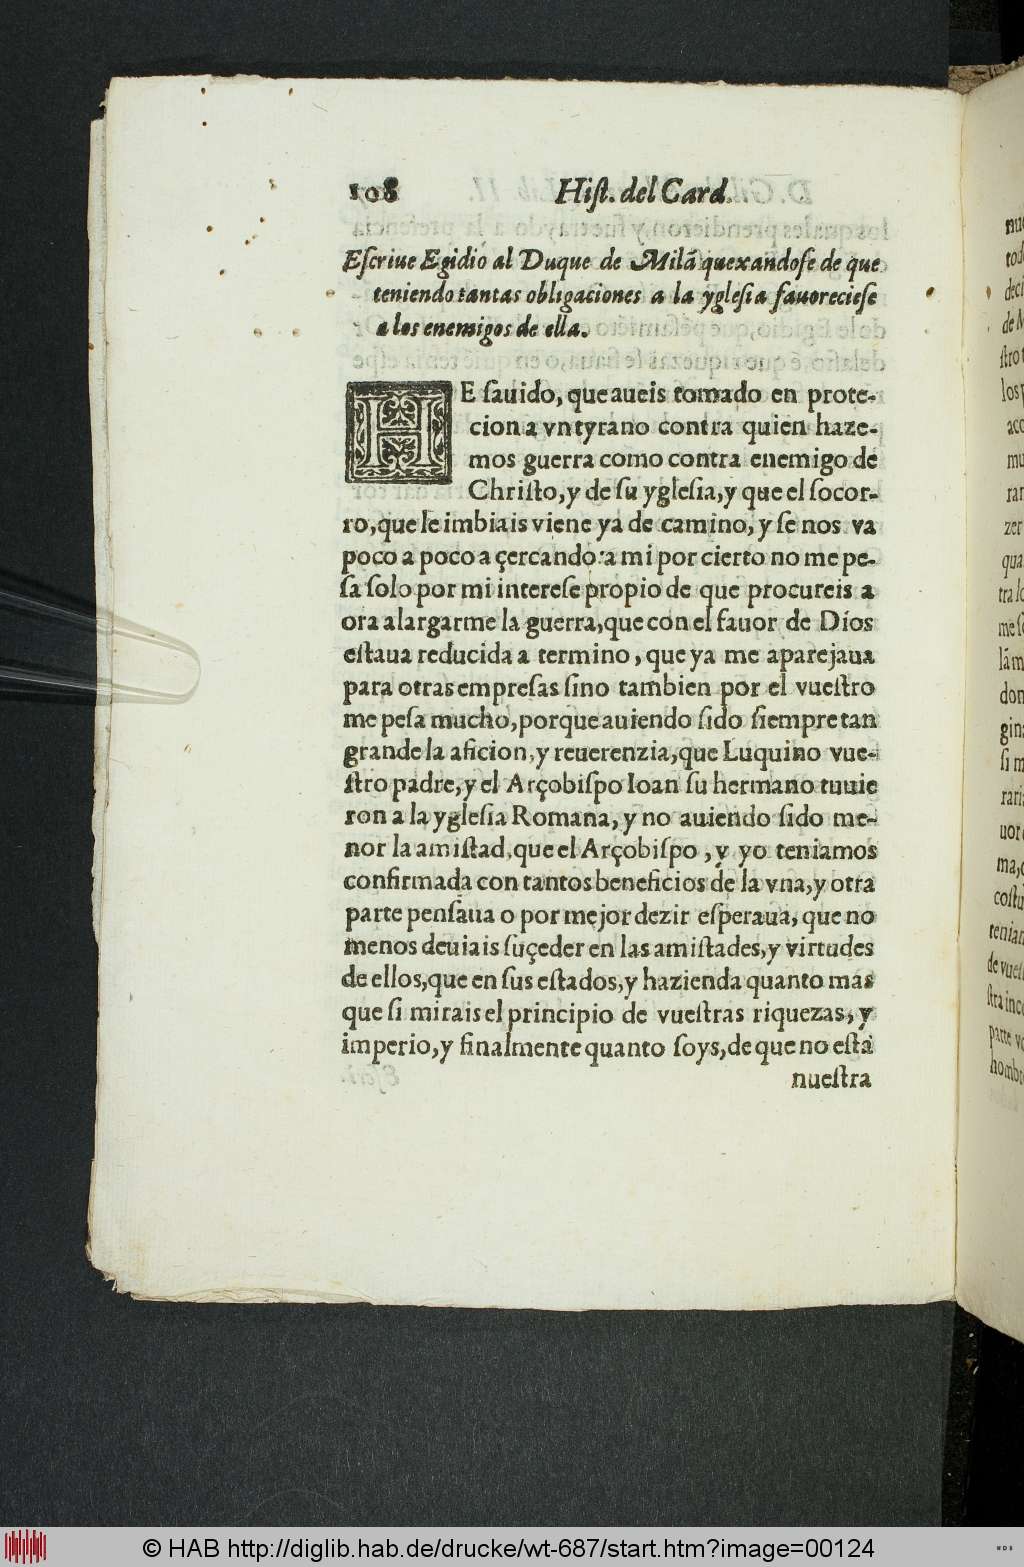 108 Hiſt. del Card.
Eſcriue Egidio al Duque de Milã quexandoſe de que
teniendo tantas obligaciones a la ygleſia fauorecieſe
a los enemigos de ella.
HE ſauido, que aueis tomado en prote-
cion a vn tyrano contra quien haze-
mos guerra como contra enemigo de
Chriſto, y de ſu ygleſia, y que el ſocor-
ro, que le imbiais viene ya de camino, y ſe nos va
poco a poco a çercando: a mi por cierto no me pe-
ſa ſolo por mi intereſe propio de que procureis a
ora alargarme la guerra, que con el fauor de Dios
eſtaua reducida a termino, que ya me aparejaua
para otras empreſas ſino tambien por el vueſtro
me peſa mucho, porque auiendo ſido ſiempre tan
grande la aficion, y reuerenzia, que Luquino vue-
ſtro padre, y el Arçobiſpo Ioan ſu hermano tuuie
ron a la ygleſia Romana, y no auiendo ſido me-
nor la amiſtad, que el Arçobiſpo, y yo teniamos
confirmada con tantos beneficios de la vna, y otra
parte penſaua o por mejor dezir eſperaua, que no
menos deuiais ſuçeder en las amiſtades, y virtudes
de ellos, que en ſus eſtados, y hazienda quanto mas
que ſi mirais el principio de vueſtras riquezas, y
imperio, y finalmente quanto ſoys, de que no eſtà
nueſtra
© HAB http://diglib.hab.de/drucke/wt-687/start.htm?image=00124